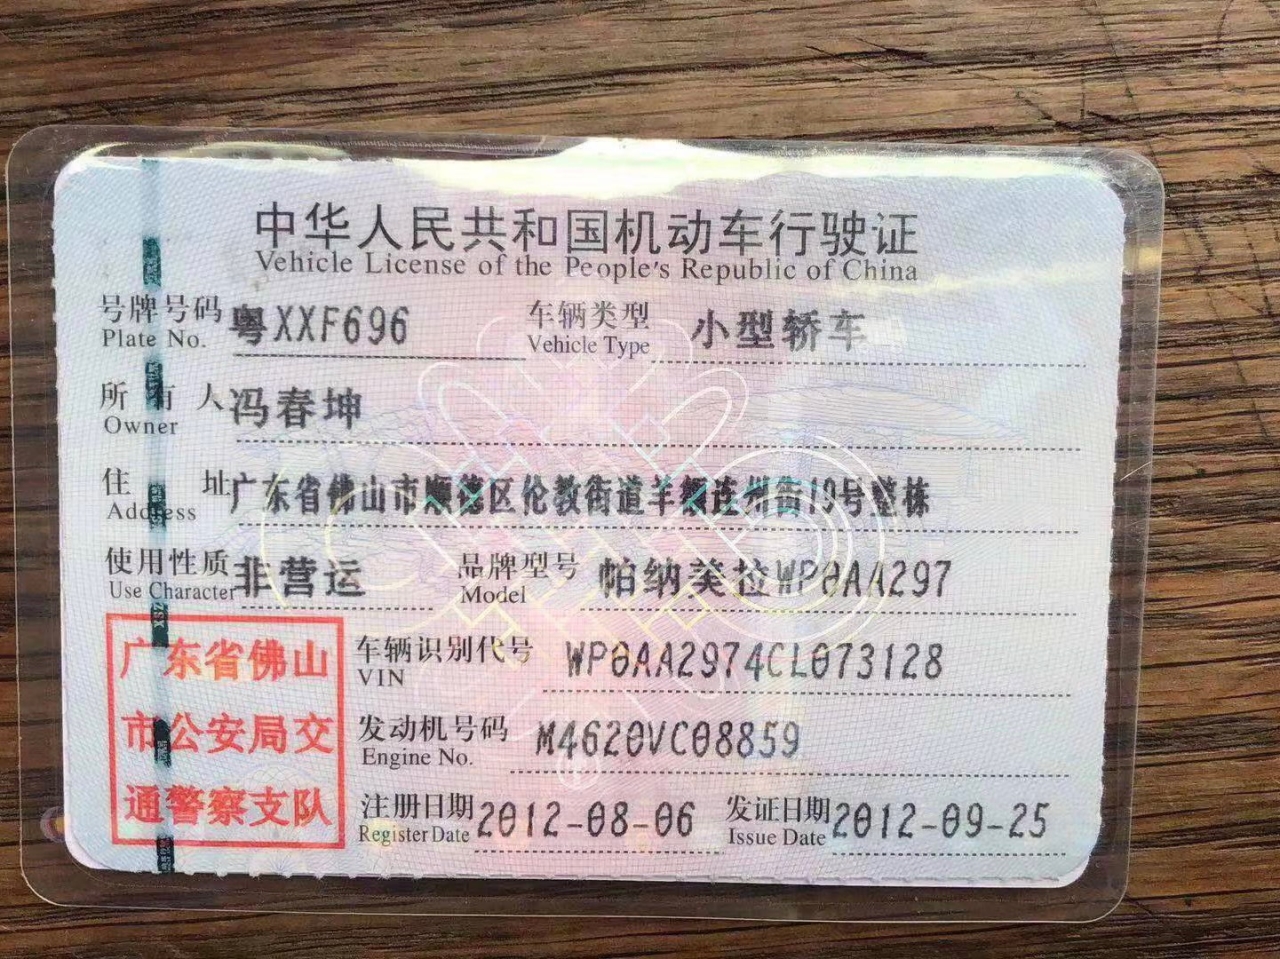 中华人民共和国机动车行驶证
Vehicle License of the People's Republic of China
号牌号码 粤XXF696 车辆类型 小型轿车
Plate No. Vehicle Type
所有人 冯春坤
Owner
住址 广东省佛山市顺德区伦教街道羊额连州街19号整栋
Address
使用性质 非营运 品牌型号 帕纳美拉WP0AA297
Use Character Model
广东省佛山
市公安局交
通警察支队
车辆识别代号 WP0AA2974CL073128
VIN
发动机号码 M4620VC08859
Engine No.
注册日期 2012-08-06 发证日期 2012-09-25
Register Date Issue Date